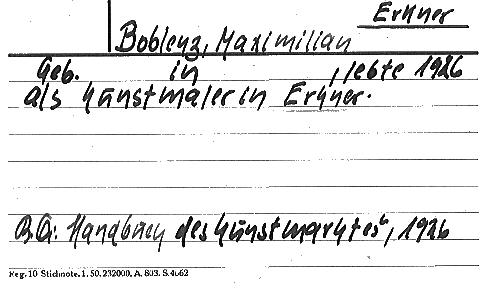 Erkner
Boblenz, Maximilian
Geb. in , lebte 1926
als Kunstmaler in Erkner.
B.Q: Handbuch des Kunstmarktes", 1926
Reg. 10 Stichnote. 1. 50. 232000. A. 803. S. 4662